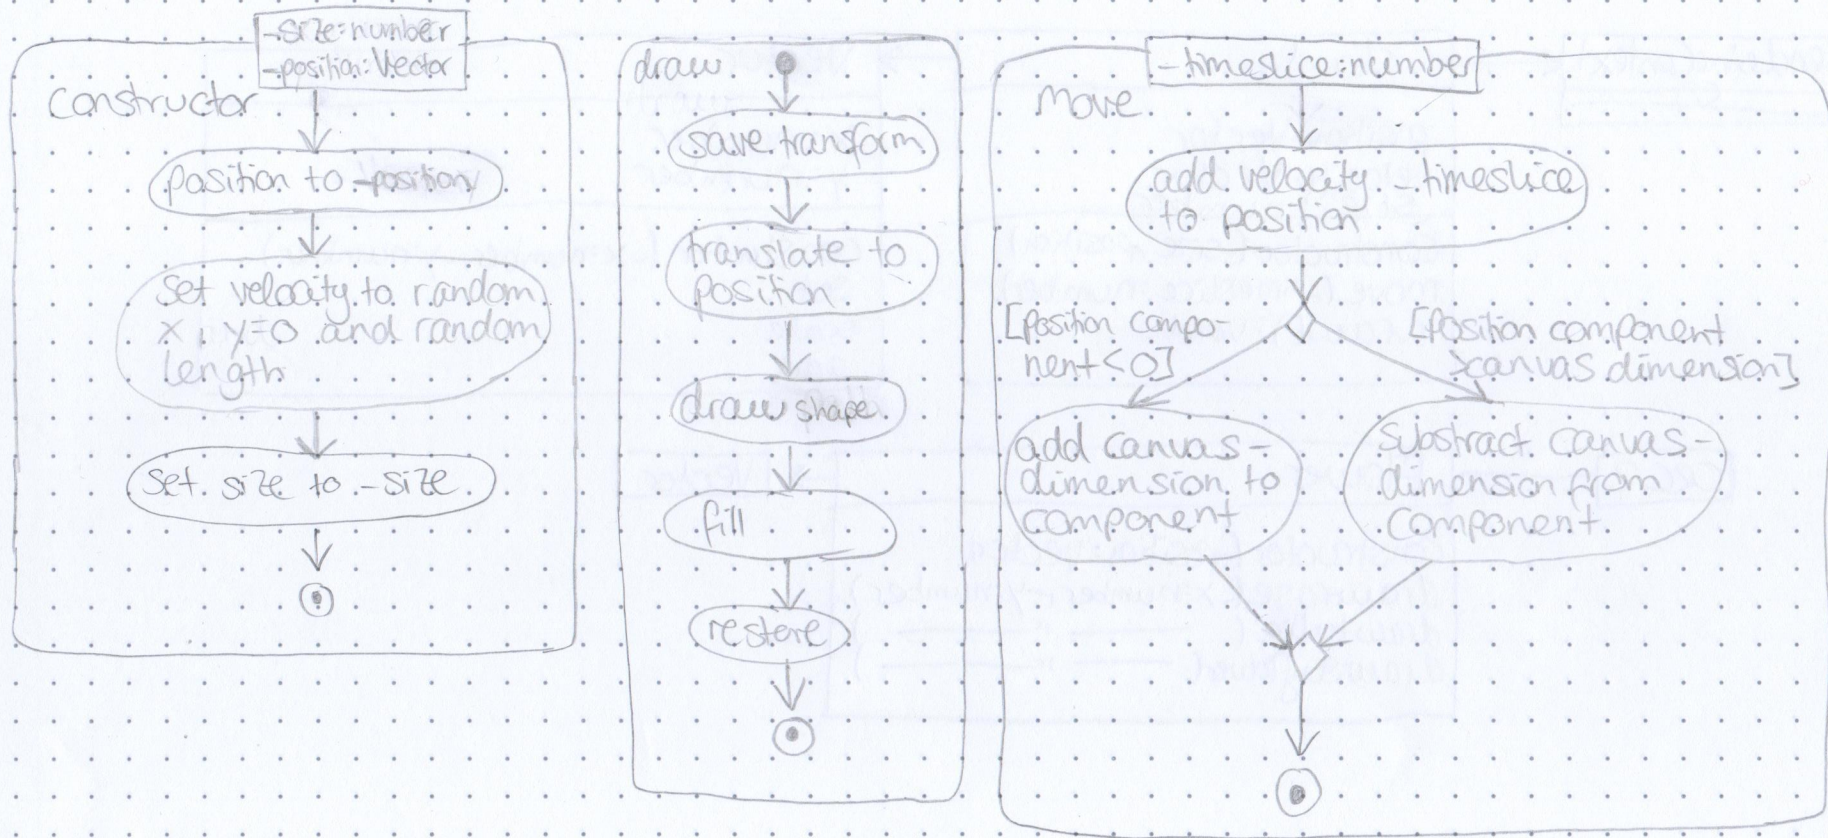 -size:number
-position:Vector
constructor
position to -position
set velocity to random
x, y=0 and random
length
set size to -size
draw
save transform
translate to
position
draw shape
fill
restore
-timeslice:number
move
add velocity -timeslice
to position
[position compo-
nent<0]
[position component
>canvas dimension]
add canvas-
dimension to
component
substract canvas-
dimension from
component